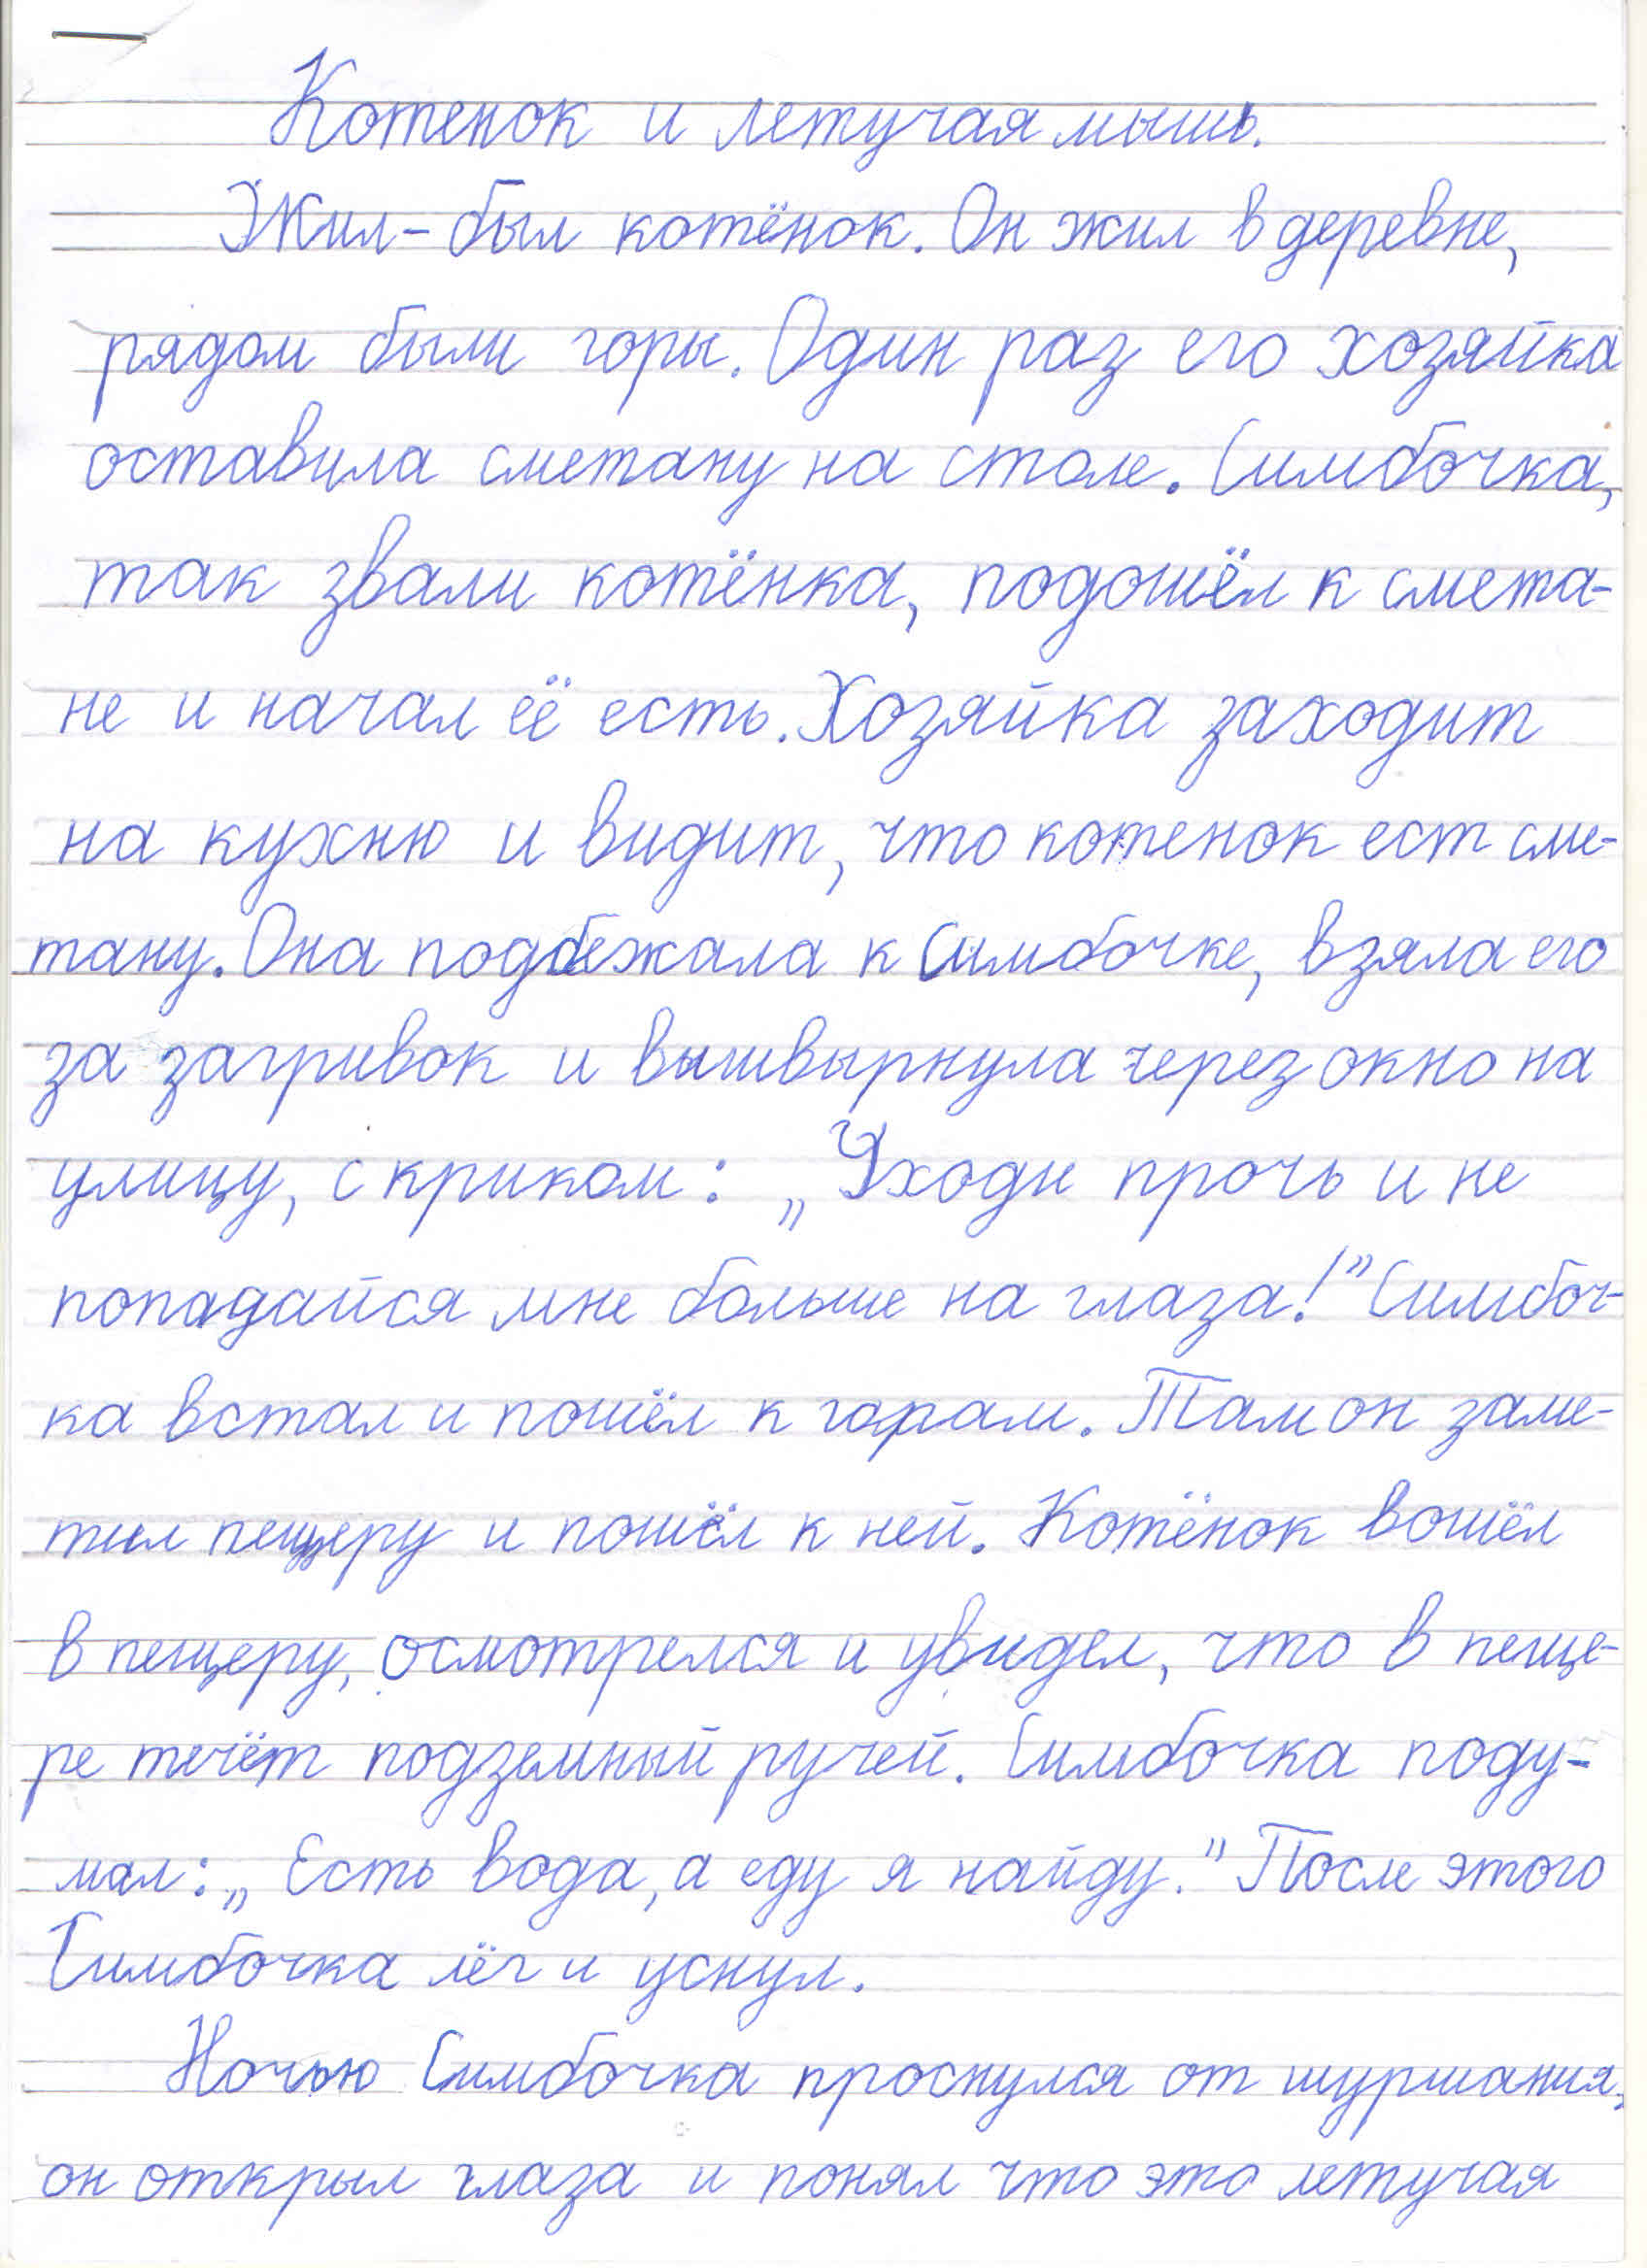 Котенок и летучая мышь.
Жил-был котёнок. Он жил в деревне,
рядом были горы. Один раз его хозяйка
оставила сметану на столе. Симбочка,
так звали котёнка, подошёл к смета-
не и начал её есть. Хозяйка заходит
на кухню и видит, что котенок ест сме-
тану. Она подбежала к Симбочке, взяла его
за загривок и вышвырнула через окно на
улицу, с криком: „Уходи прочь и не
попадайся мне больше на глаза!” Симбоч-
ка встал и пошёл к горам. Там он заме-
тил пещеру и пошёл к ней. Котёнок вошёл
в пещеру, осмотрелся и увидел, что в пеще-
ре течёт подземный ручей. Симбочка поду-
мал: „Есть вода, а еду я найду.” После этого
Симбочка лёг и уснул.
Ночью Симбочка проснулся от шуршания,
он открыл глаза и понял что это летучая